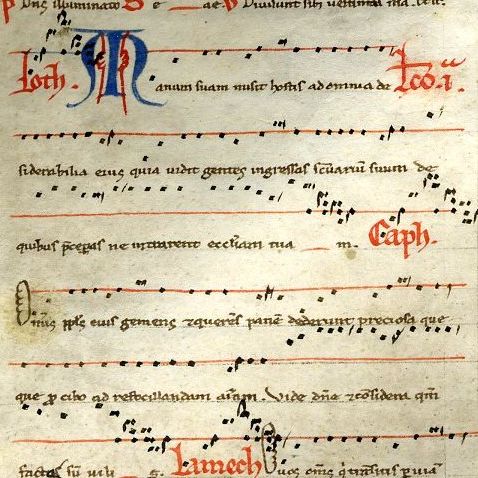 Ioth. Manum suam misit hostis ad omnia de Lco. i.
siderabilia eius quia vidit gentes ingressas scuarium suum de
quibus pceperas ne intrarent eccliam tua m. Caph.
Omnis ppls eius gemens et querens panem dederunt preciosa que
que p cibo ad refocillandam aiam. Vide dne et considera qm
facta sum vili s. Lamech O vos oms q transitis p viam